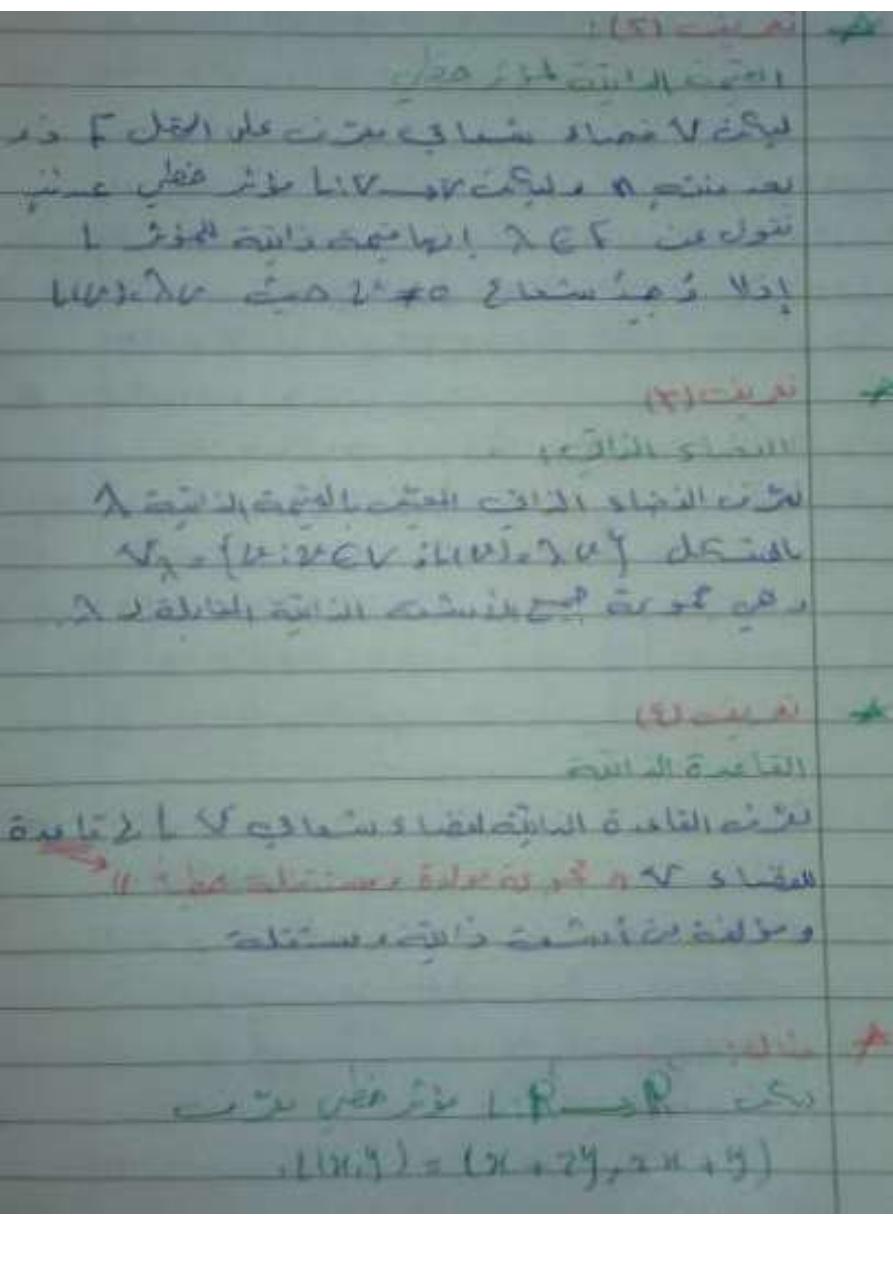 تعريف (2):
القيمة الذاتية لمؤثر خطي
ليكن V فضاء شعاعي معرف على الحقل F ذو
بعد منته n وليكن L:V→V مؤثر خطي عندئذٍ
نقول عن λ∈F إنها قيمة ذاتية للمؤثر L
إذا وُجدَ شعاع v≠0 حيث L(v)=λv
تعريف (3)
الفضاء الذاتي:
نعرف الفضاء الذاتي المعيّن بالقيمة الذاتية λ
بالشكل V_λ = {v: v∈V ; L(v)=λv}
وهي مجموعة جميع الأشعة الذاتية المقابلة لـ λ.
تعريف (4)
القاعدة الذاتية
نعرف القاعدة الذاتية لفضاء شعاعي V قاعدة
للفضاء V " مجموعة مولدة ومستقلة خطياً "
ومؤلفة من أشعة ذاتية ومستقلة
مثال:
ليكن L: R²→R² مؤثر خطي معرف
L(x,y) = (x + 2y, 2x + y)